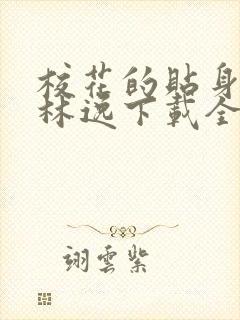 校花的貼身
林逸下載全
翊雲紫